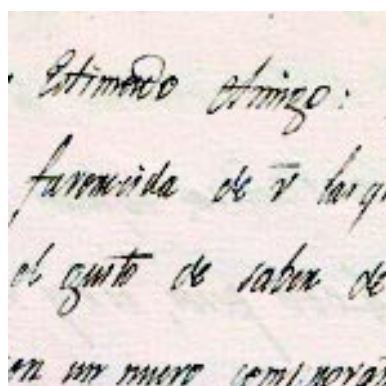 Estimado Amigo:
favorecida de v las q
el gusto de saber de
un nuevo